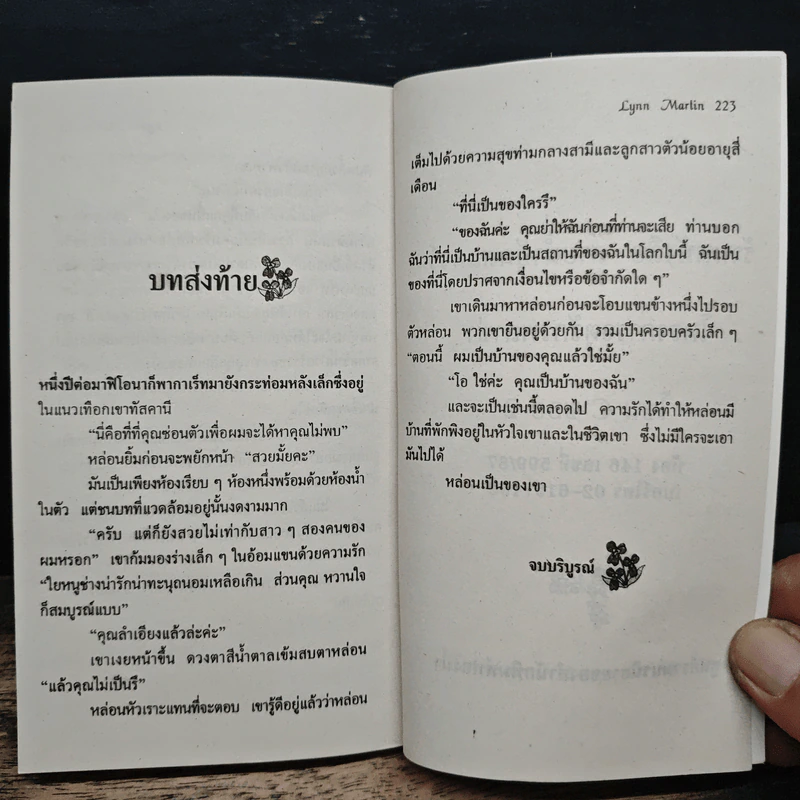 บทส่งท้าย
หนึ่งปีต่อมาฟิโอนาก็พากาเร็ทมายังกระท่อมหลังเล็กซึ่งอยู่
ในแนวเทือกเขาทัสคานี
“นี่คือที่ที่คุณซ่อนตัวเพื่อผมจะได้หาคุณไม่พบ”
หล่อนยิ้มก่อนจะพยักหน้า “สวยมั้ยคะ”
มันเป็นเพียงห้องเรียบ ๆ ห้องหนึ่งพร้อมด้วยห้องน้ำ
ในตัว แต่ชนบทที่แวดล้อมอยู่นั้นงดงามมาก
“ครับ แต่ก็ยังสวยไม่เท่ากับสาว ๆ สองคนของ
ผมหรอก” เขาก้มมองร่างเล็ก ๆ ในอ้อมแขนด้วยความรัก
“ใยหนูช่างน่ารักน่าทะนุถนอมเหลือเกิน ส่วนคุณ หวานใจ
ก็สมบูรณ์แบบ”
“คุณลำเอียงแล้วล่ะค่ะ”
เขาเงยหน้าขึ้น ดวงตาสีน้ำตาลเข้มสบตาหล่อน
“แล้วคุณไม่เป็นรึ”
หล่อนหัวเราะแทนที่จะตอบ เขารู้ดีอยู่แล้วว่าหล่อน
Lynn Martin 223
เต็มไปด้วยความสุขท่ามกลางสามีและลูกสาวตัวน้อยอายุสี่
เดือน
“ที่นี่เป็นของใครรึ”
“ของฉันค่ะ คุณย่าให้ฉันก่อนที่ท่านจะเสีย ท่านบอก
ฉันว่าที่นี่เป็นบ้านและเป็นสถานที่ของฉันในโลกใบนี้ ฉันเป็น
ของที่นี่โดยปราศจากเงื่อนไขหรือข้อจำกัดใด ๆ”
เขาเดินมาหาหล่อนก่อนจะโอบแขนข้างหนึ่งไปรอบ
ตัวหล่อน พวกเขายืนอยู่ด้วยกัน รวมเป็นครอบครัวเล็ก ๆ
“ตอนนี้ ผมเป็นบ้านของคุณแล้วใช่มั้ย”
“โอ ใช่ค่ะ คุณเป็นบ้านของฉัน”
และจะเป็นเช่นนี้ตลอดไป ความรักได้ทำให้หล่อนมี
บ้านที่พักพิงอยู่ในหัวใจเขาและในชีวิตเขา ซึ่งไม่มีใครจะเอา
มันไปได้
หล่อนเป็นของเขา
จบบริบูรณ์